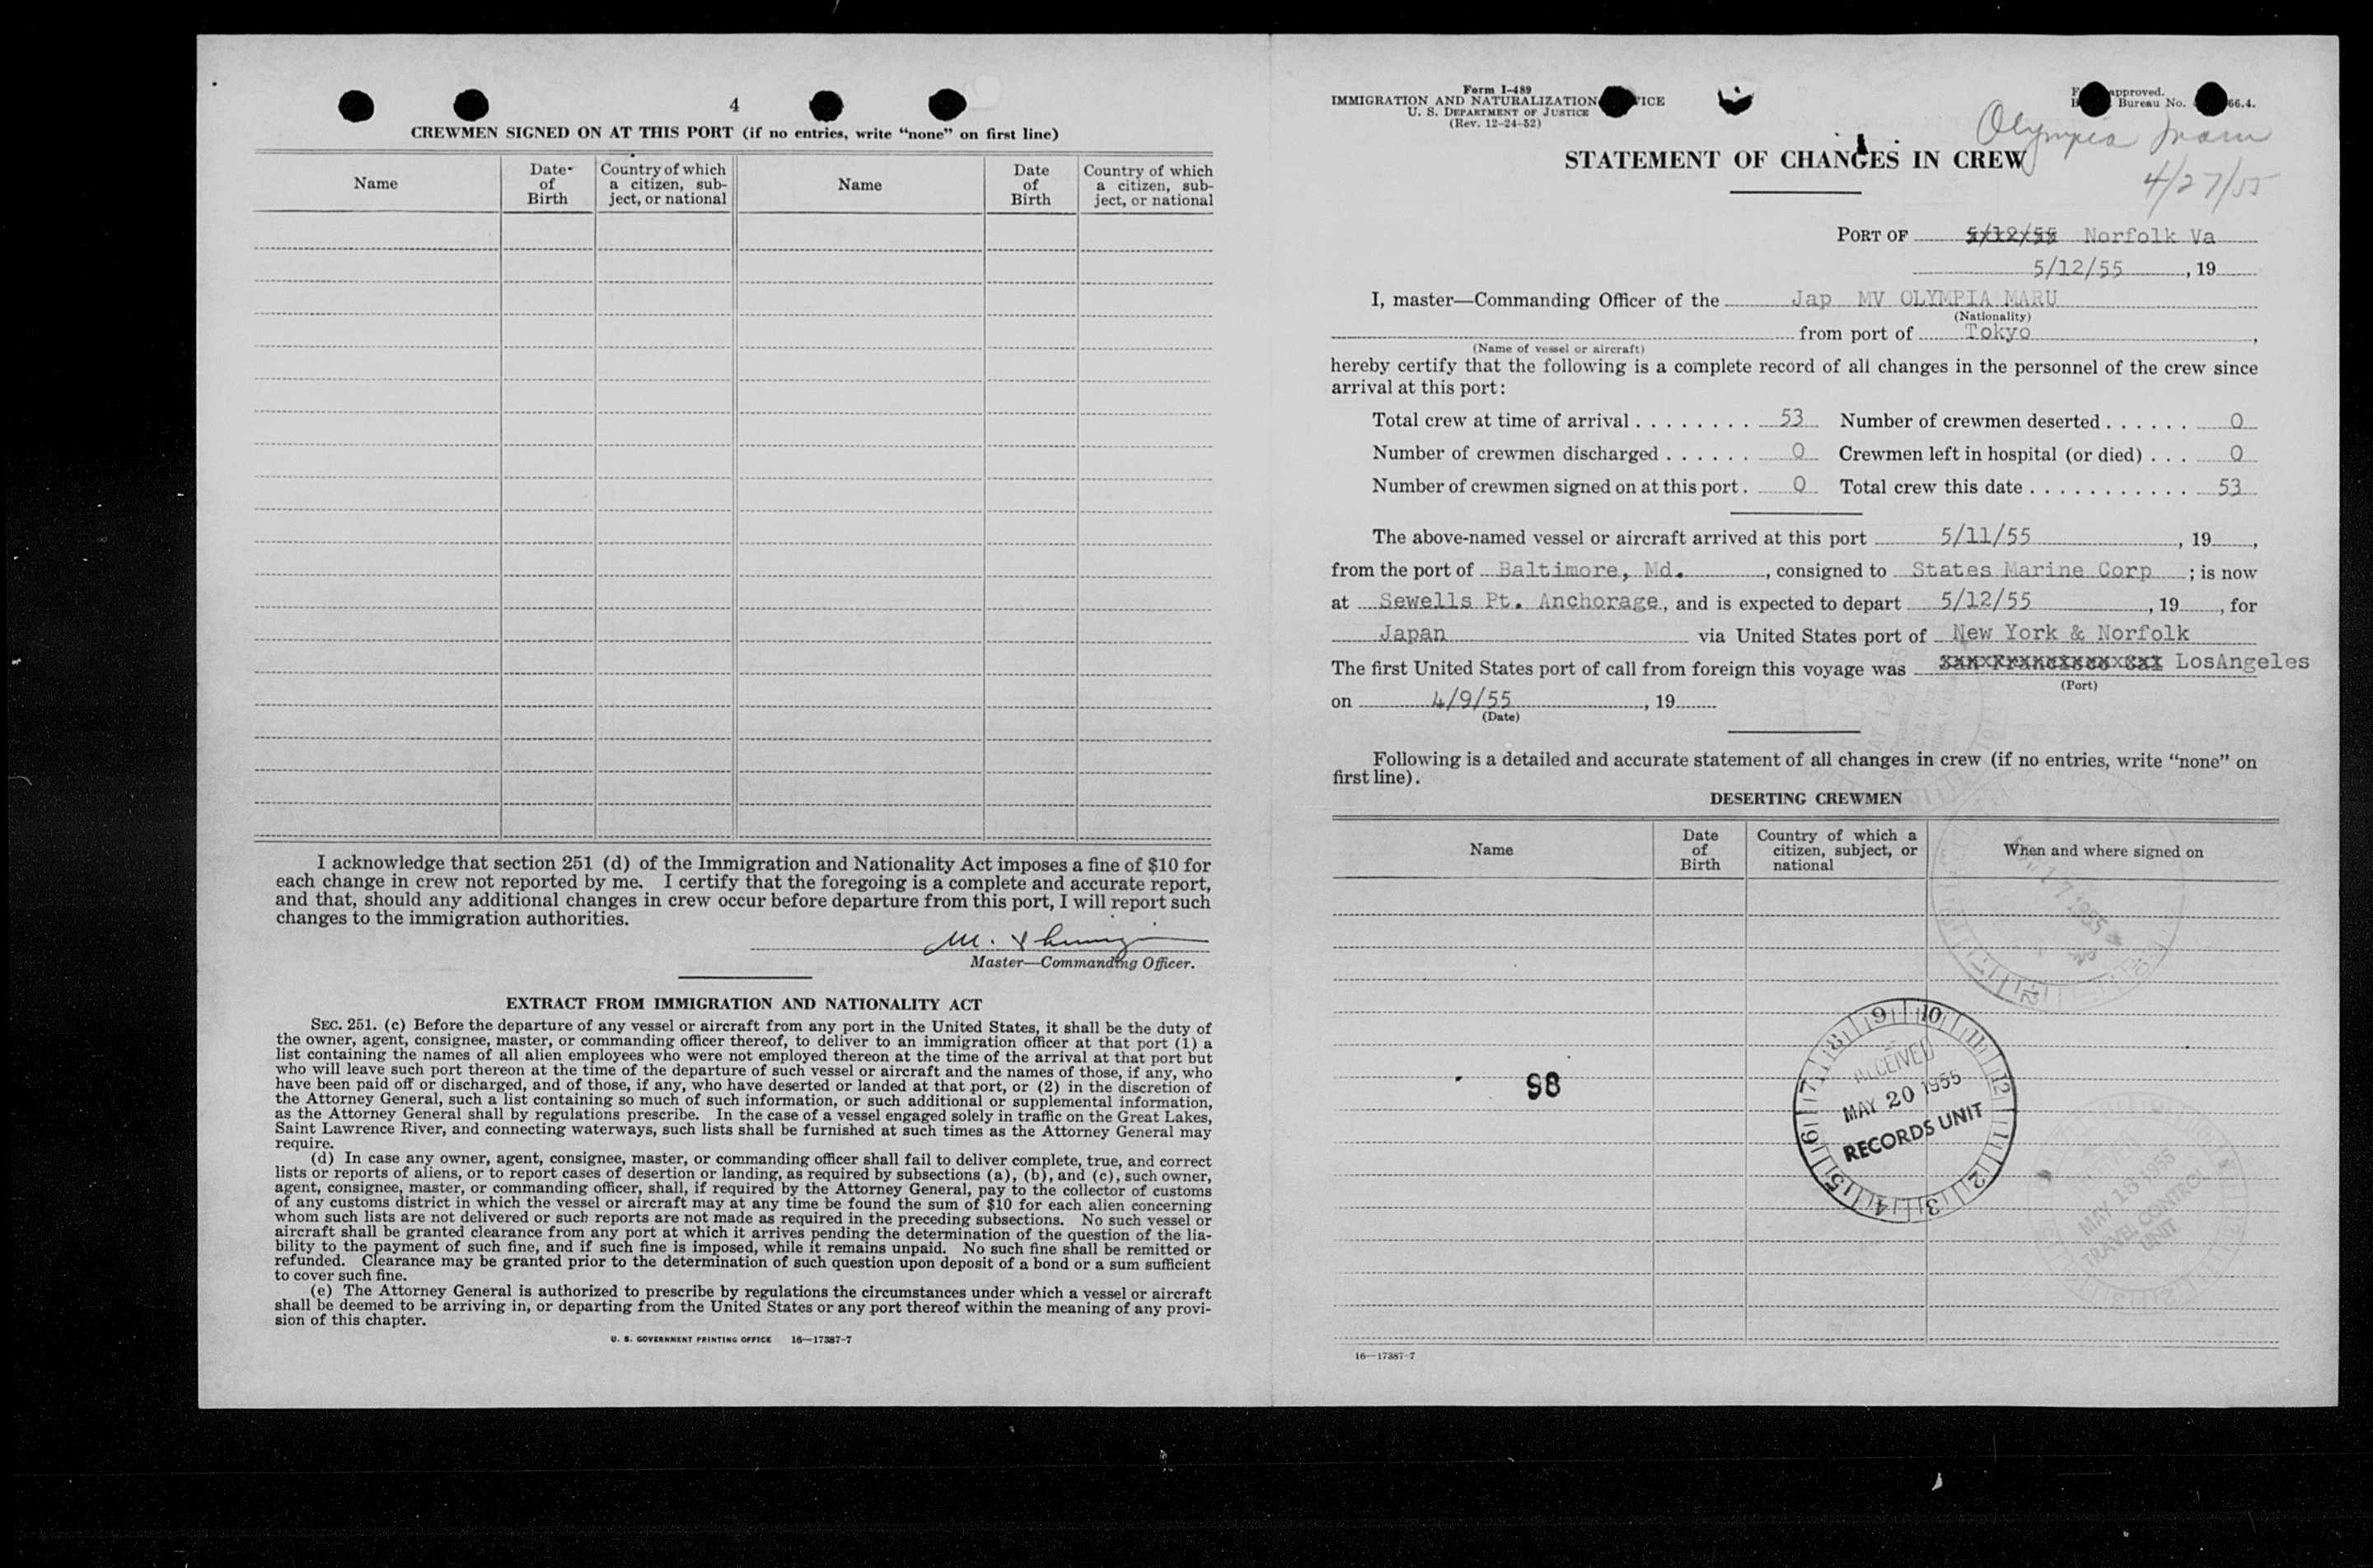 4
CREWMEN SIGNED ON AT THIS PORT (if no entries, write “none” on first line)
Name
Date of Birth
Country of which a citizen, subject, or national
Name
Date of Birth
Country of which a citizen, subject, or national
I acknowledge that section 251 (d) of the Immigration and Nationality Act imposes a fine of $10 for
each change in crew not reported by me. I certify that the foregoing is a complete and accurate report,
and that, should any additional changes in crew occur before departure from this port, I will report such
changes to the immigration authorities.
M.
Master—Commanding Officer.
EXTRACT FROM IMMIGRATION AND NATIONALITY ACT
SEC. 251. (c) Before the departure of any vessel or aircraft from any port in the United States, it shall be the duty of
the owner, agent, consignee, master, or commanding officer thereof, to deliver to an immigration officer at that port (1) a
list containing the names of all alien employees who were not employed thereon at the time of the arrival at that port but
who will leave such port thereon at the time of the departure of such vessel or aircraft and the names of those, if any, who
have been paid off or discharged, and of those, if any, who have deserted or landed at that port, or (2) in the discretion of
the Attorney General, such a list containing so much of such information, or such additional or supplemental information,
as the Attorney General shall by regulations prescribe. In the case of a vessel engaged solely in traffic on the Great Lakes,
Saint Lawrence River, and connecting waterways, such lists shall be furnished at such times as the Attorney General may
require.
(d) In case any owner, agent, consignee, master, or commanding officer shall fail to deliver complete, true, and correct
lists or reports of aliens, or to report cases of desertion or landing, as required by subsections (a), (b), and (c), such owner,
agent, consignee, master, or commanding officer, shall, if required by the Attorney General, pay to the collector of customs
of any customs district in which the vessel or aircraft may at any time be found the sum of $10 for each alien concerning
whom such lists are not delivered or such reports are not made as required in the preceding subsections. No such vessel or
aircraft shall be granted clearance from any port at which it arrives pending the determination of the question of the lia-
bility to the payment of such fine, and if such fine is imposed, while it remains unpaid. No such fine shall be remitted or
refunded. Clearance may be granted prior to the determination of such question upon deposit of a bond or a sum sufficient
to cover such fine.
(e) The Attorney General is authorized to prescribe by regulations the circumstances under which a vessel or aircraft
shall be deemed to be arriving in, or departing from the United States or any port thereof within the meaning of any provi-
sion of this chapter.
U. S. GOVERNMENT PRINTING OFFICE 16—17387-7
Form I-489
IMMIGRATION AND NATURALIZATION VICE
U. S. DEPARTMENT OF JUSTICE
(Rev. 12-24-52)
approved.
Bureau No. 66.4.
Olympia Maru
4/27/55
STATEMENT OF CHANGES IN CREW
PORT OF 5/12/55 Norfolk Va
5/12/55, 19
I, master—Commanding Officer of the Jap MV OLYMPIA MARU
(Nationality)
from port of Tokyo,
(Name of vessel or aircraft)
hereby certify that the following is a complete record of all changes in the personnel of the crew since
arrival at this port:
Total crew at time of arrival 53 Number of crewmen deserted 0
Number of crewmen discharged 0 Crewmen left in hospital (or died) 0
Number of crewmen signed on at this port. 0 Total crew this date 53
The above-named vessel or aircraft arrived at this port 5/11/55, 19,
from the port of Baltimore, Md., consigned to States Marine Corp; is now
at Sewells Pt. Anchorage, and is expected to depart 5/12/55, 19, for
Japan via United States port of New York & Norfolk
The first United States port of call from foreign this voyage was San Francisco Cal LosAngeles
(Port)
on 4/9/55, 19
(Date)
Following is a detailed and accurate statement of all changes in crew (if no entries, write “none” on
first line).
DESERTING CREWMEN
Name
Date of Birth
Country of which a citizen, subject, or national
When and where signed on
17 1955
98
9 10 11 12 1 2 3 4 5 6 7 8
RECEIVED
MAY 20 1955
RECORDS UNIT
MAY 18 1955
TRAVEL CONTROL
UNIT
16—17387-7